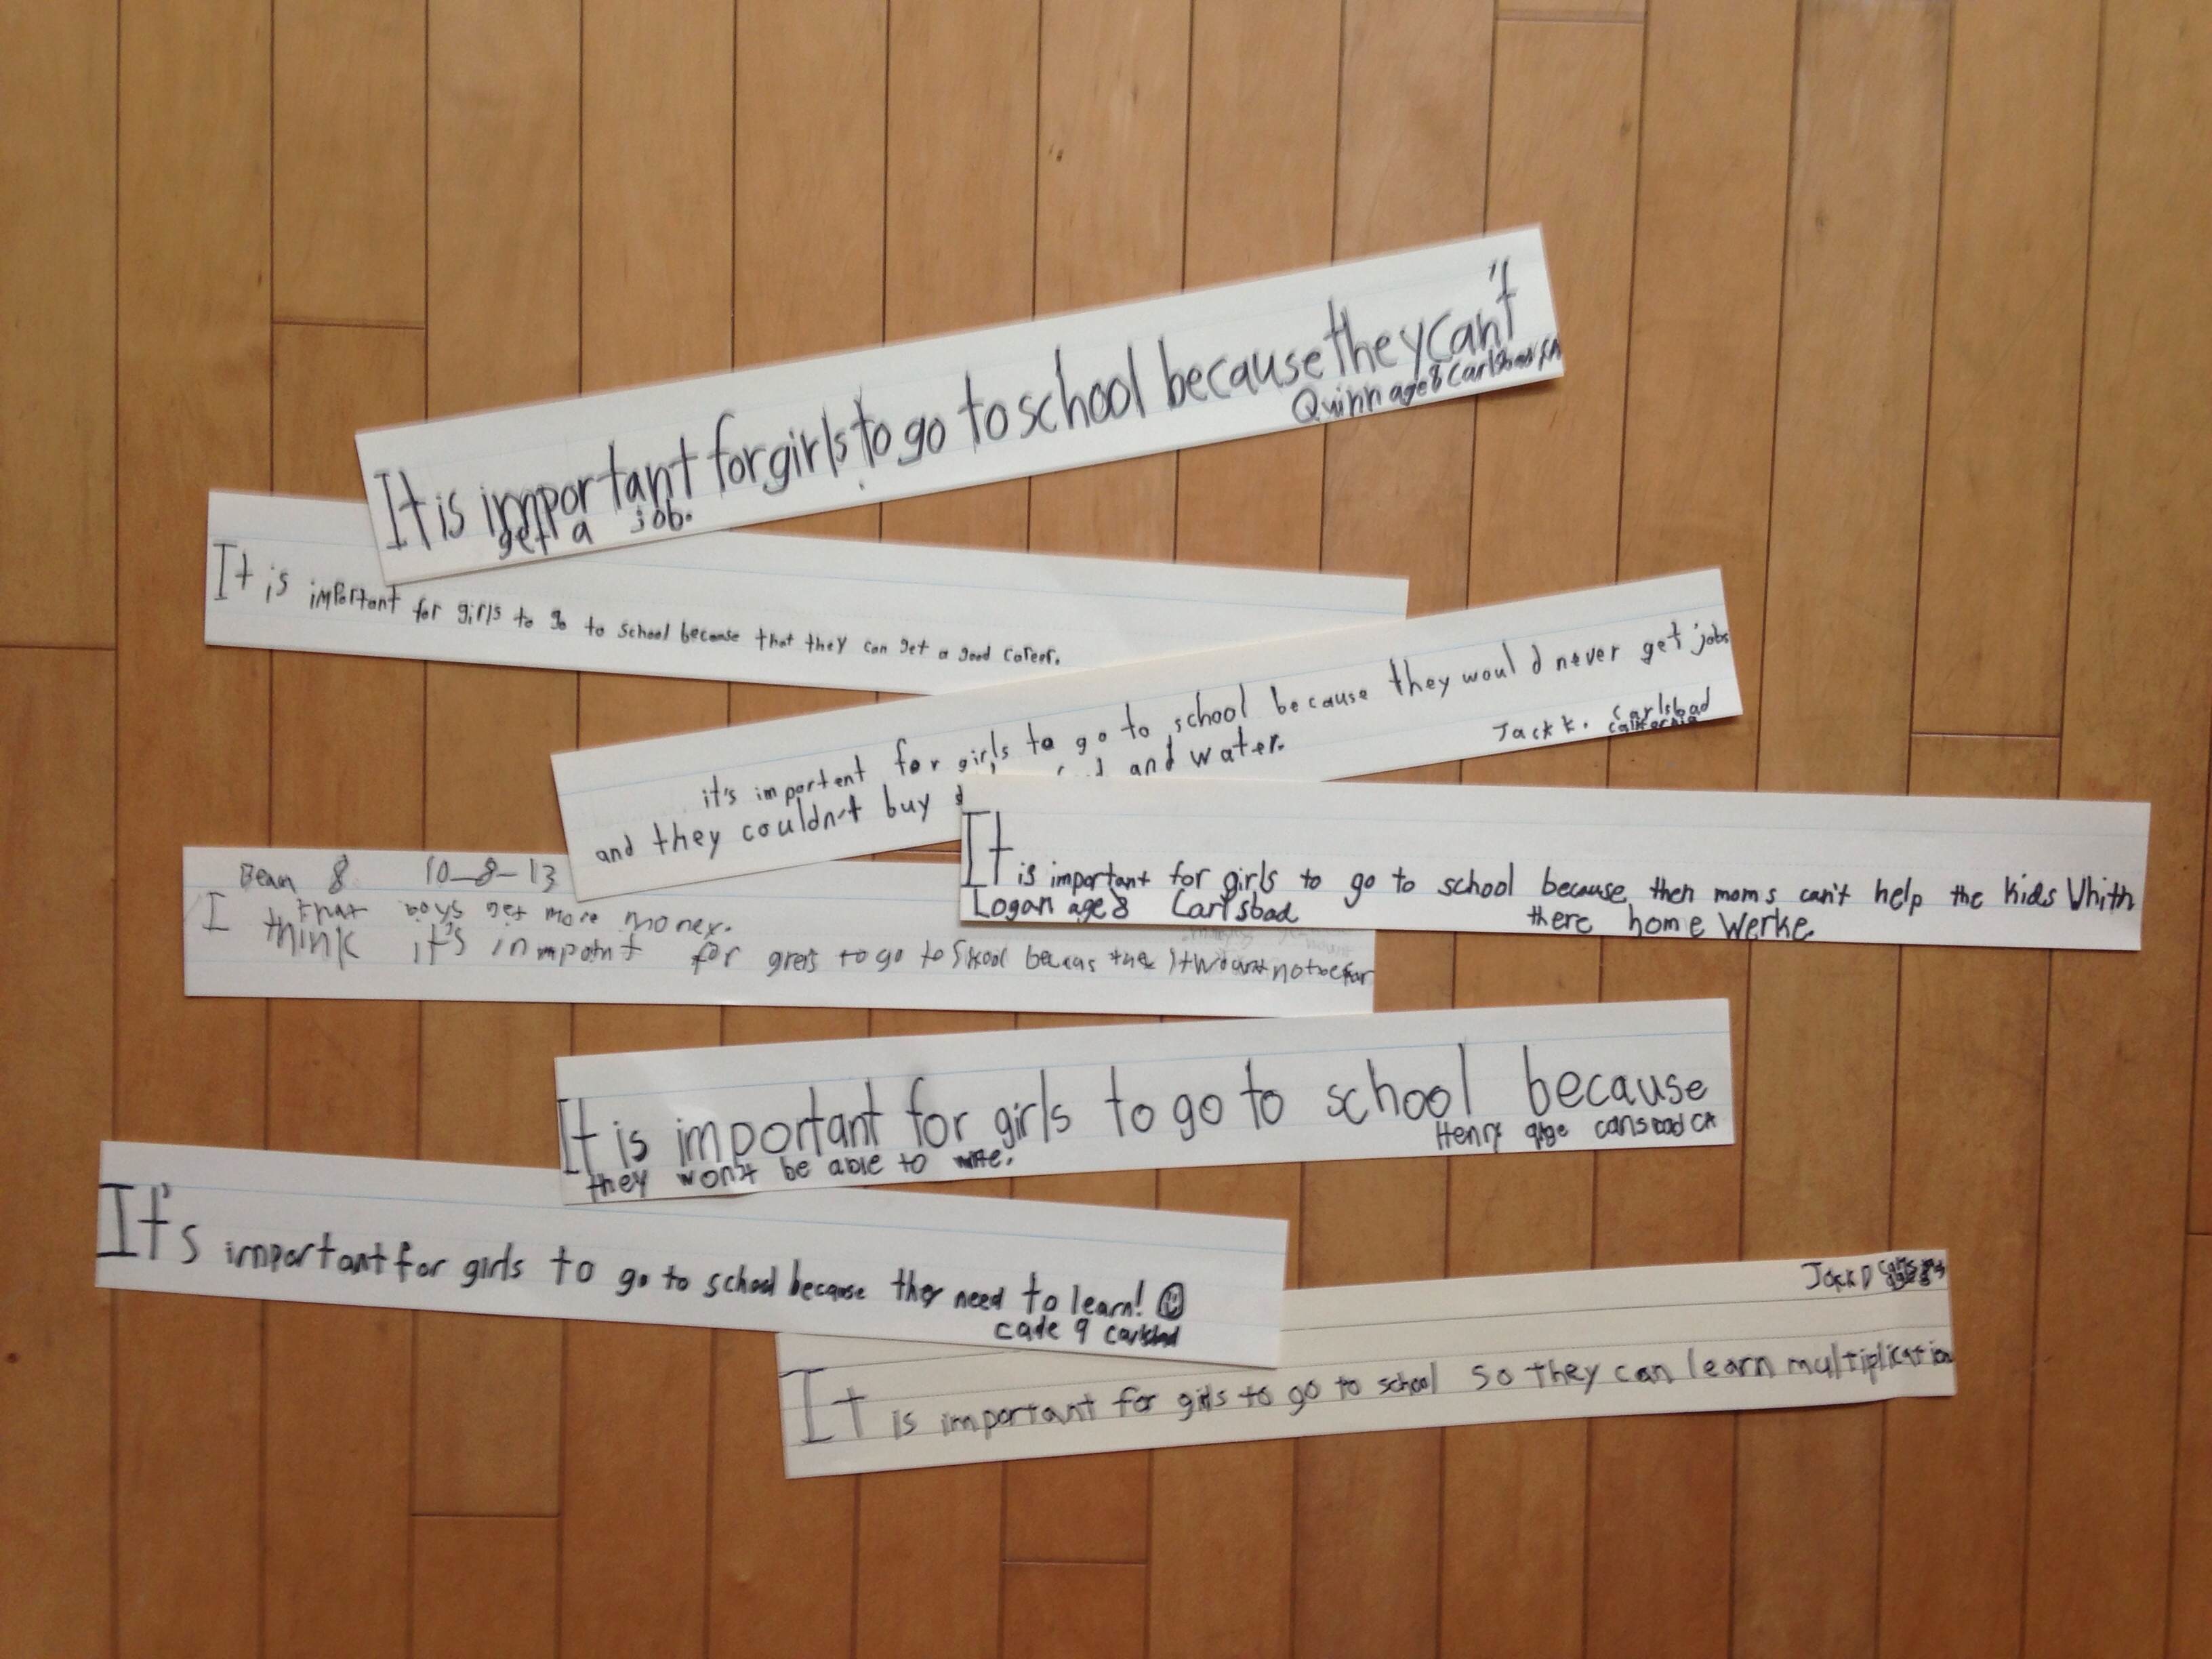 It is important for girls to go to school because they can't
get a job.
Quinn age 8 Carlsbad CA
It is important for girls to go to school because that they can get a good career.
it's importent for girls to go to school because they would never get jobs
and they couldn't buy and water.
Jack K. Carlsbad
California
It is important for girls to go to school because then moms can't help the kids Whith
there home Werke
Logan age 8 Carlsbad
8 10-8-13
that boys get more money.
I think it's inmpotnt for to go to becuas
It is important for girls to go to school because
they won't be able to
Henry age CA
It's important for girls to go to school because they need to learn!
cade 9 Carlsbad
Jack D
It is important for girls to go to school so they can learn multiplication